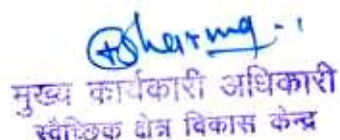 Sharma
मुख्य कार्यकारी अधिकारी
स्वैच्छिक क्षेत्र विकास केन्द्र